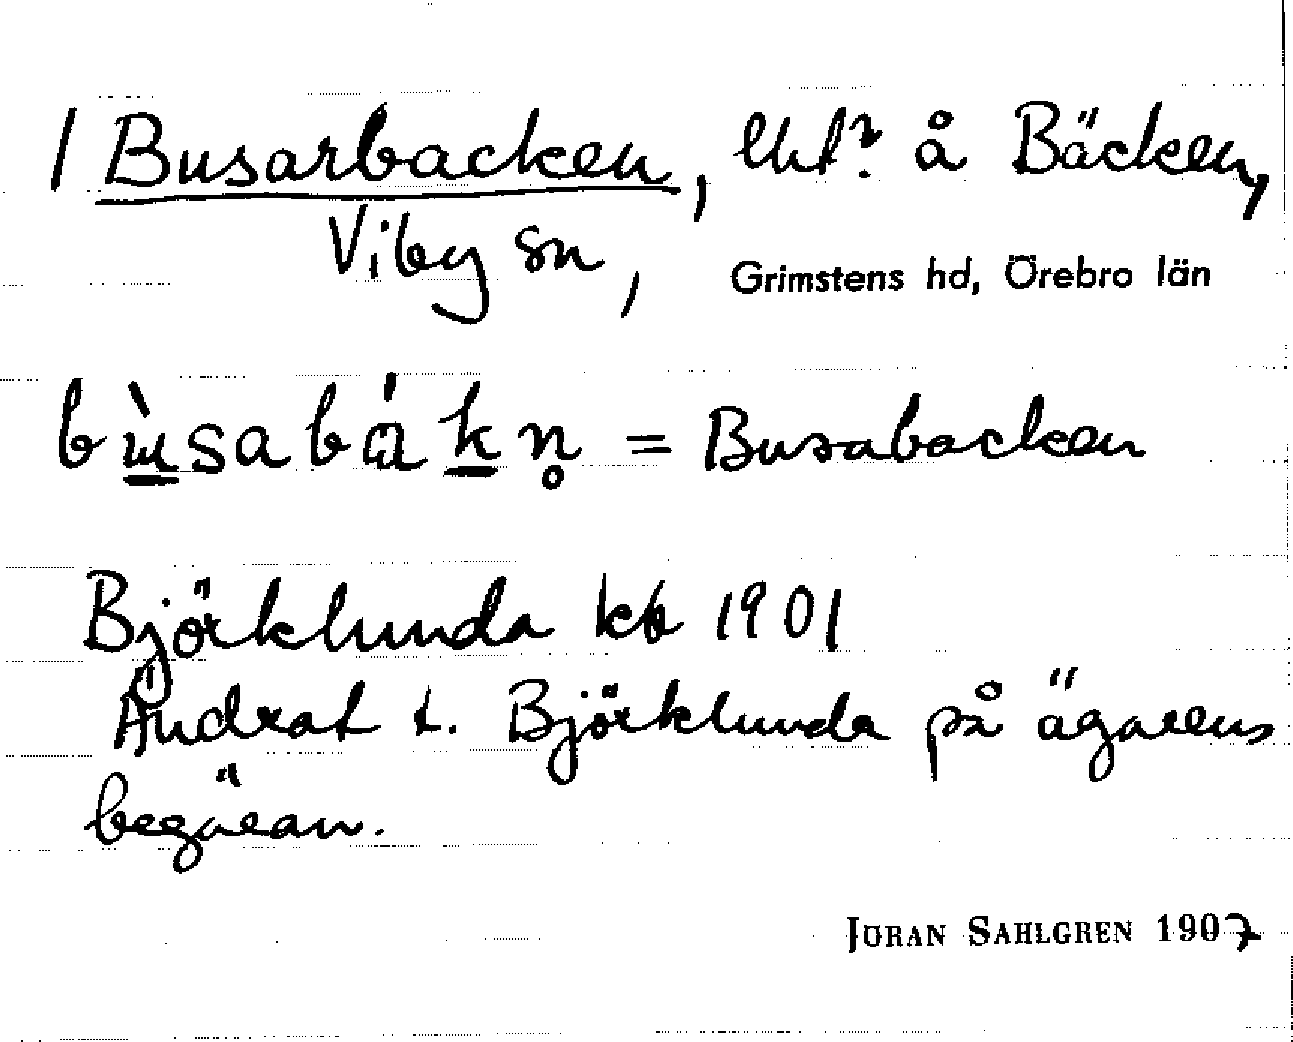 / Busarbacken, lht? å Bäcken,
Viby sn, Grimstens hd, Örebro län
bùsabákn̥ = Busabacken
Björklunda kb 1901
Ändrat t. Björklunda på ägarens
begäran.
JÖRAN SAHLGREN 1907